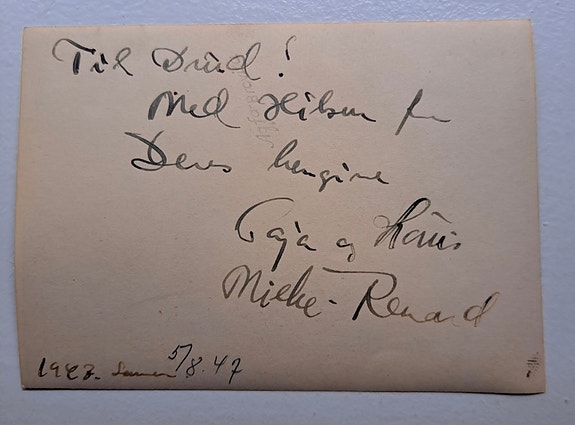 Til Drud!
Med Hilsen fra
Deres hengivne
Caja og Hans
Mielke-Renard
1943. Samen 5/8.47